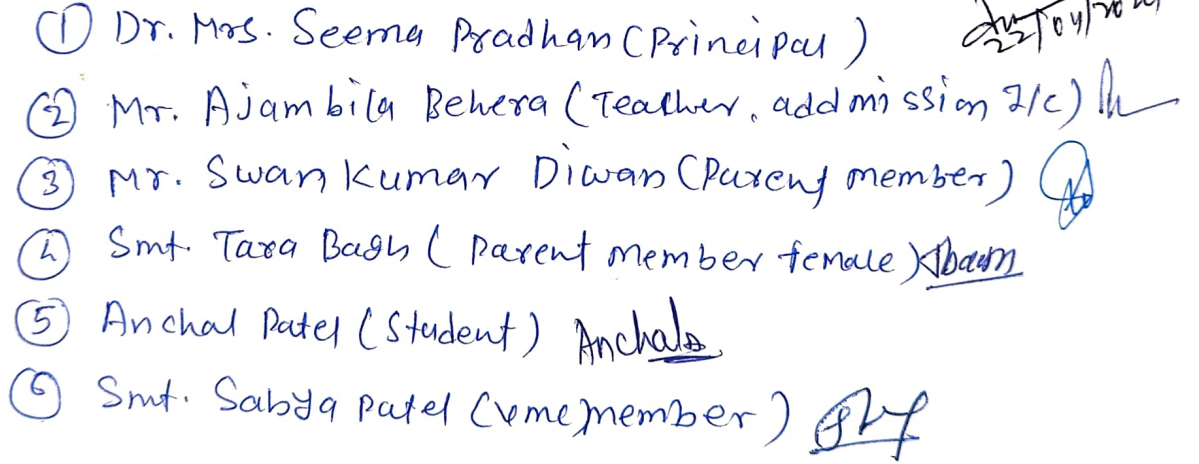 ① Dr. Mrs. Seema Pradhan (Principal) 22/04/
② Mr. Ajambila Behera (Teacher, addmission I/C)
③ Mr. Swan Kumar Diwan (Parent member)
④ Smt. Tara Bagh (Parent member female)
⑤ Anchal Patel (Student) Anchal
⑥ Smt. Sabya Patel (member)